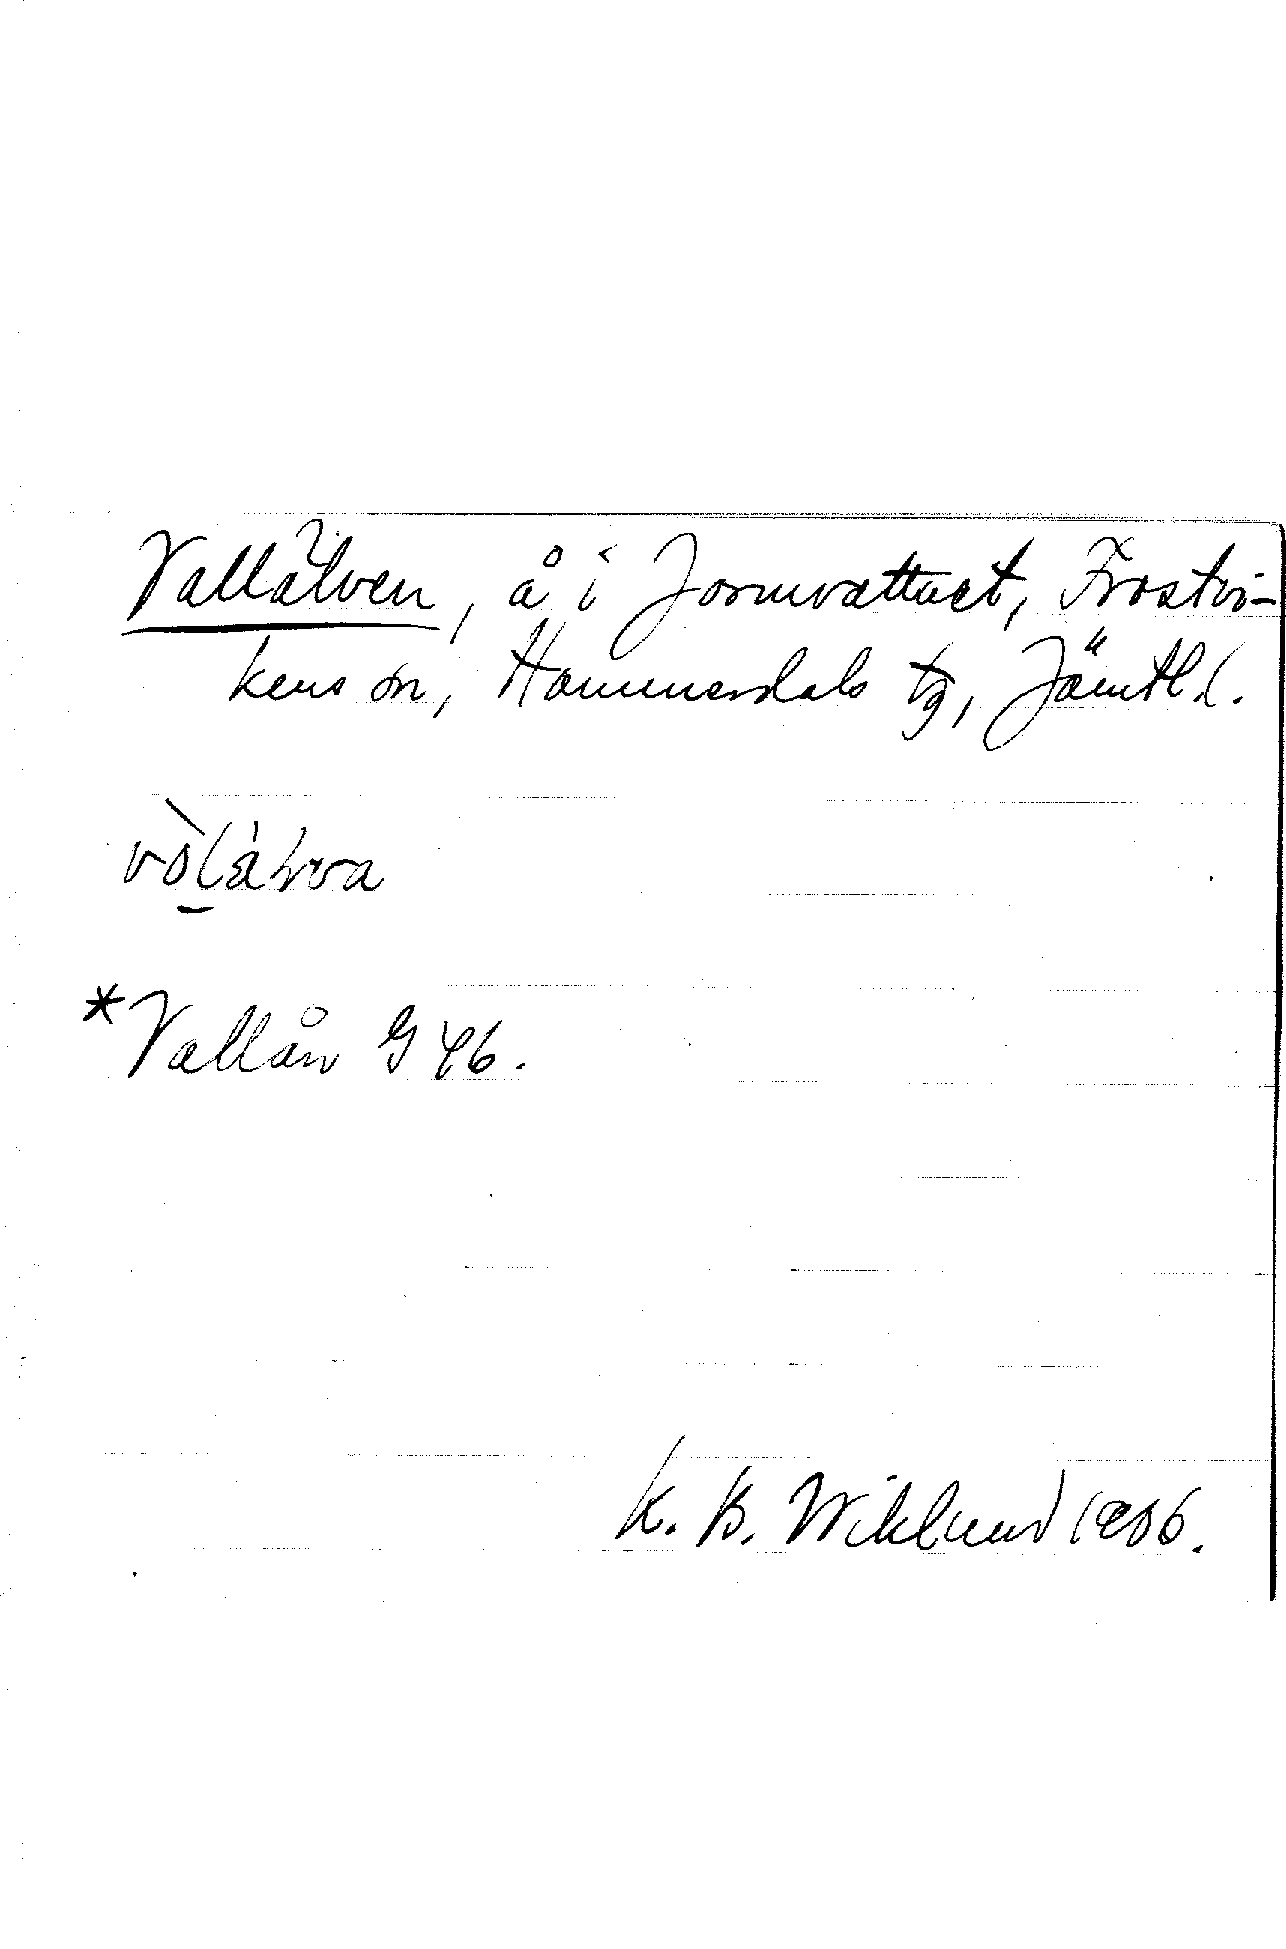 Vallälven, å i Jormvattnet, Frostvi-
kens sn, Hammerdals tg, Jämtl l.
*Vallån G 46.
K. B. Wiklund 1906.